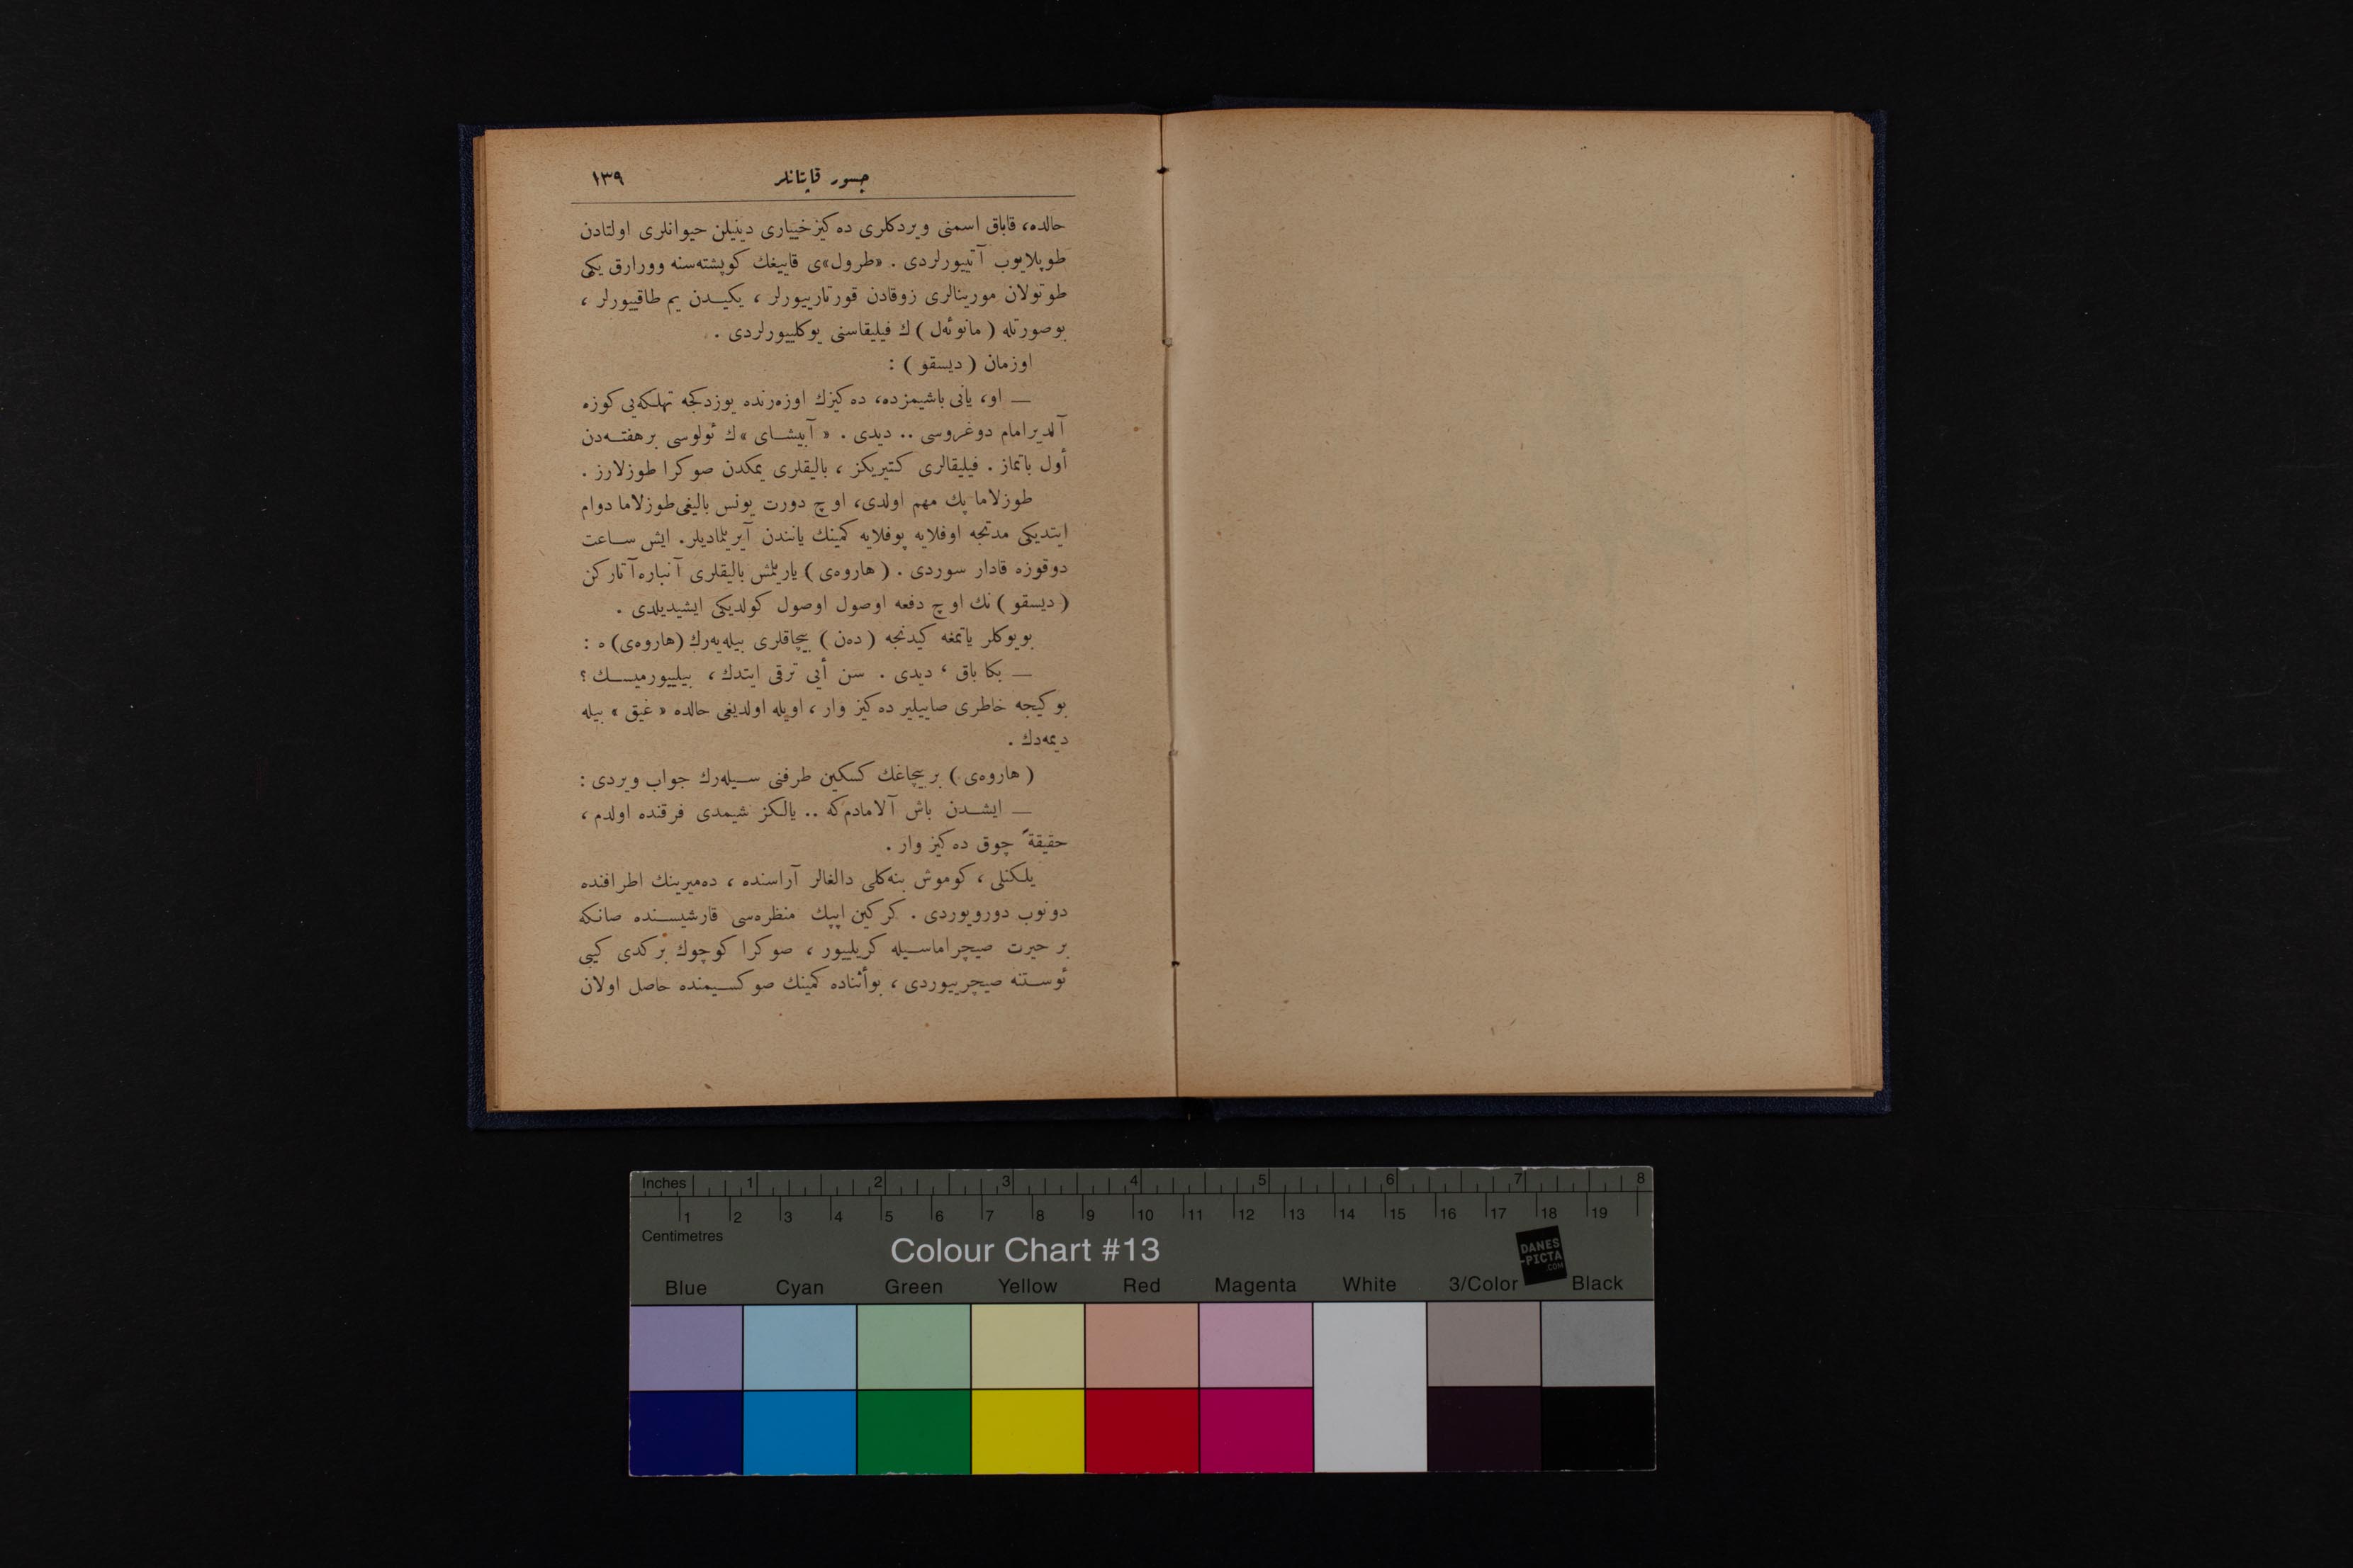 جسور قاپتانلر ١٣٩
حالده، قاباق اسمنی ویردكلری ده‌كیزخییاری دینیلن حیوانلری اولتادن
طوپلایوب آتییورلردی . «طرول»ی قاییغك كوپشته‌سنه وورارق یكی
طوتولان مورینالری زوقادن قورتارییورلر ، یكیـدن یم طاقییورلر ،
بوصورتله ( مانوئه‌ل ) ك فیلیقاسنی یوكلییورلردی .
اوزمان ( دیسقو ) :
— او، یانی باشیمزده، ده‌كیزك اوزه‌رنده یوزدكجه تهلكه‌یی كوزه
آلدیرامام دوغروسی .. دیدی . « آبیشـای »ك ئولوسی برهفتـه‌دن
أول باتماز . فیلیقالری كتیریكز ، بالیقلری یمكدن صوكرا طوزلارز .
طوزلاما پك مهم اولدی، اوچ دورت یونس بالیغی طوزلاما دوام
ایتدیكی مدتجه اوفلایه پوفلایه كمینك یانندن آیریلمادیلر. ایش سـاعت
دوقوزه قادار سوردی . ( هاروه‌ی ) یاریلمش بالیقلری آنباره آتاركن
( دیسقو ) نك اوچ دفعه اوصول اوصول كولدیكی ایشیدیلدی .
بویوكلر یاتمغه كیدنجه ( ده‌ن ) بیچاقلری بیله‌یه‌رك (هاروه‌ی) ه :
— بكا باق ، دیدی . سن أیی ترقی ایتدك ، بیلییورمیـسك ؟
بو كیجه خاطری صاییلیر ده‌كیز وار ، اویله اولدیغی حالده « غیق » بیله
دیمه‌دك .
( هاروه‌ی ) بر بیچاغك كسكین طرفنی سـیله‌رك جواب ویردی :
— ایشـدن باش آلامادم‌كه .. یالكز شیمدی فرقنده اولدم ،
حقیقةً چوق ده‌كیز وار .
یلكنلی ، كوموش بنه‌كلی دالغالر آراسنده ، ده‌میرینك اطرافنده
دونوب دورویوردی . كركین ایپك منظره‌سی قارشیسـنده صانكه
بر حیرت صیچراماسـیله كریلییور ، صوكرا كوچوك بركدی كیبی
ئوسـتنه صیچرییوردی ، بوأثناده كمینك صوكسـیمنده حاصل اولان
Inches 1 2 3 4 5 6 7 8
1 2 3 4 5 6 7 8 9 10 11 12 13 14 15 16 17 18 19
Centimetres
Colour Chart #13
DANES
-PICTA
.COM
Blue Cyan Green Yellow Red Magenta White 3/Color Black